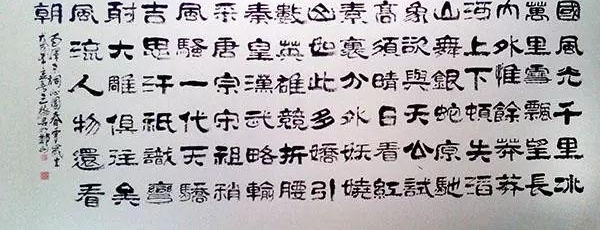 國風光千里冰
萬里雪飄望長
內外惟餘莽莽
河上下頓失滔
山舞銀蛇原馳
象欲與天公試
高須晴日看紅
素裹分外妖嬈
山如此多嬌引
數英雄競折腰
秦皇漢武略輸
采唐宗宋祖稍
風騷一代天驕
吉思汗祗識彎
射大雕俱往矣
風流人物還看
朝
毛澤東詞沁園春雪